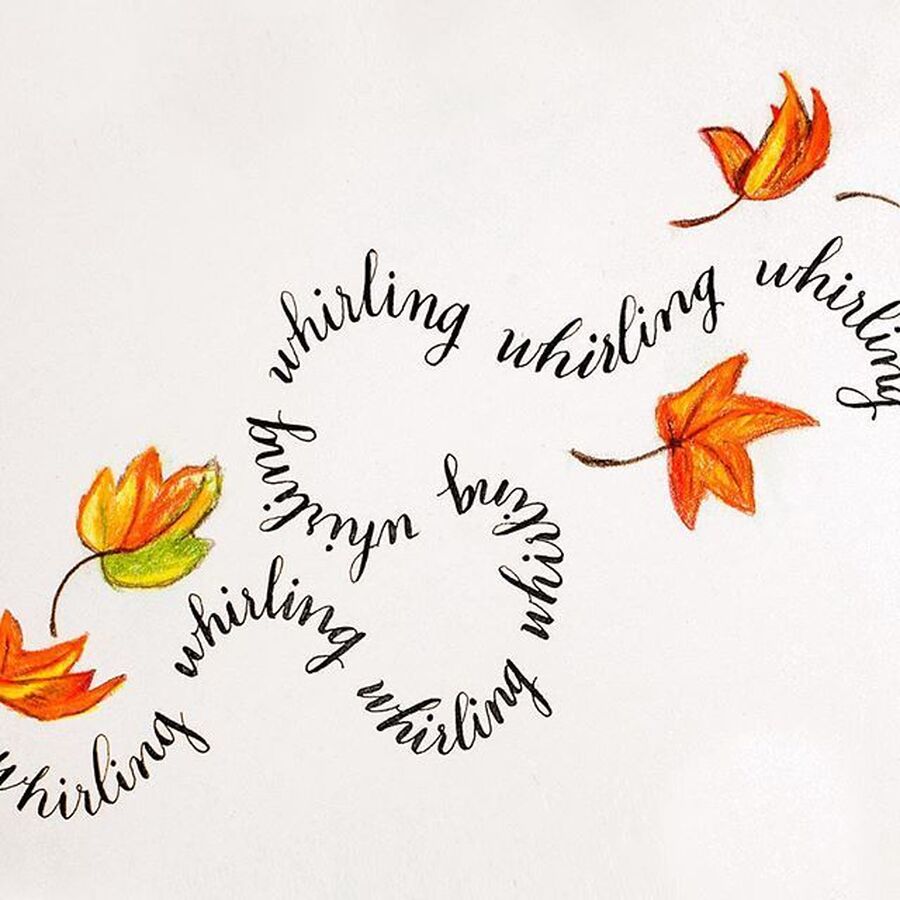 whirling
whirling
whirling
whirling
whirling
whirling
whirling
whirling